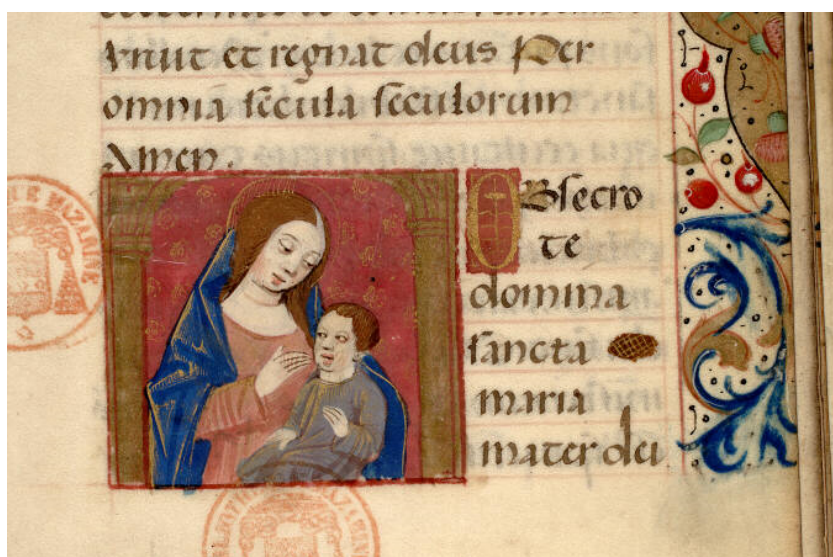 viuit et regnat deus Per
omnia secula seculorum
Amen.
OBsecro
te
domina
sancta
maria
mater dei